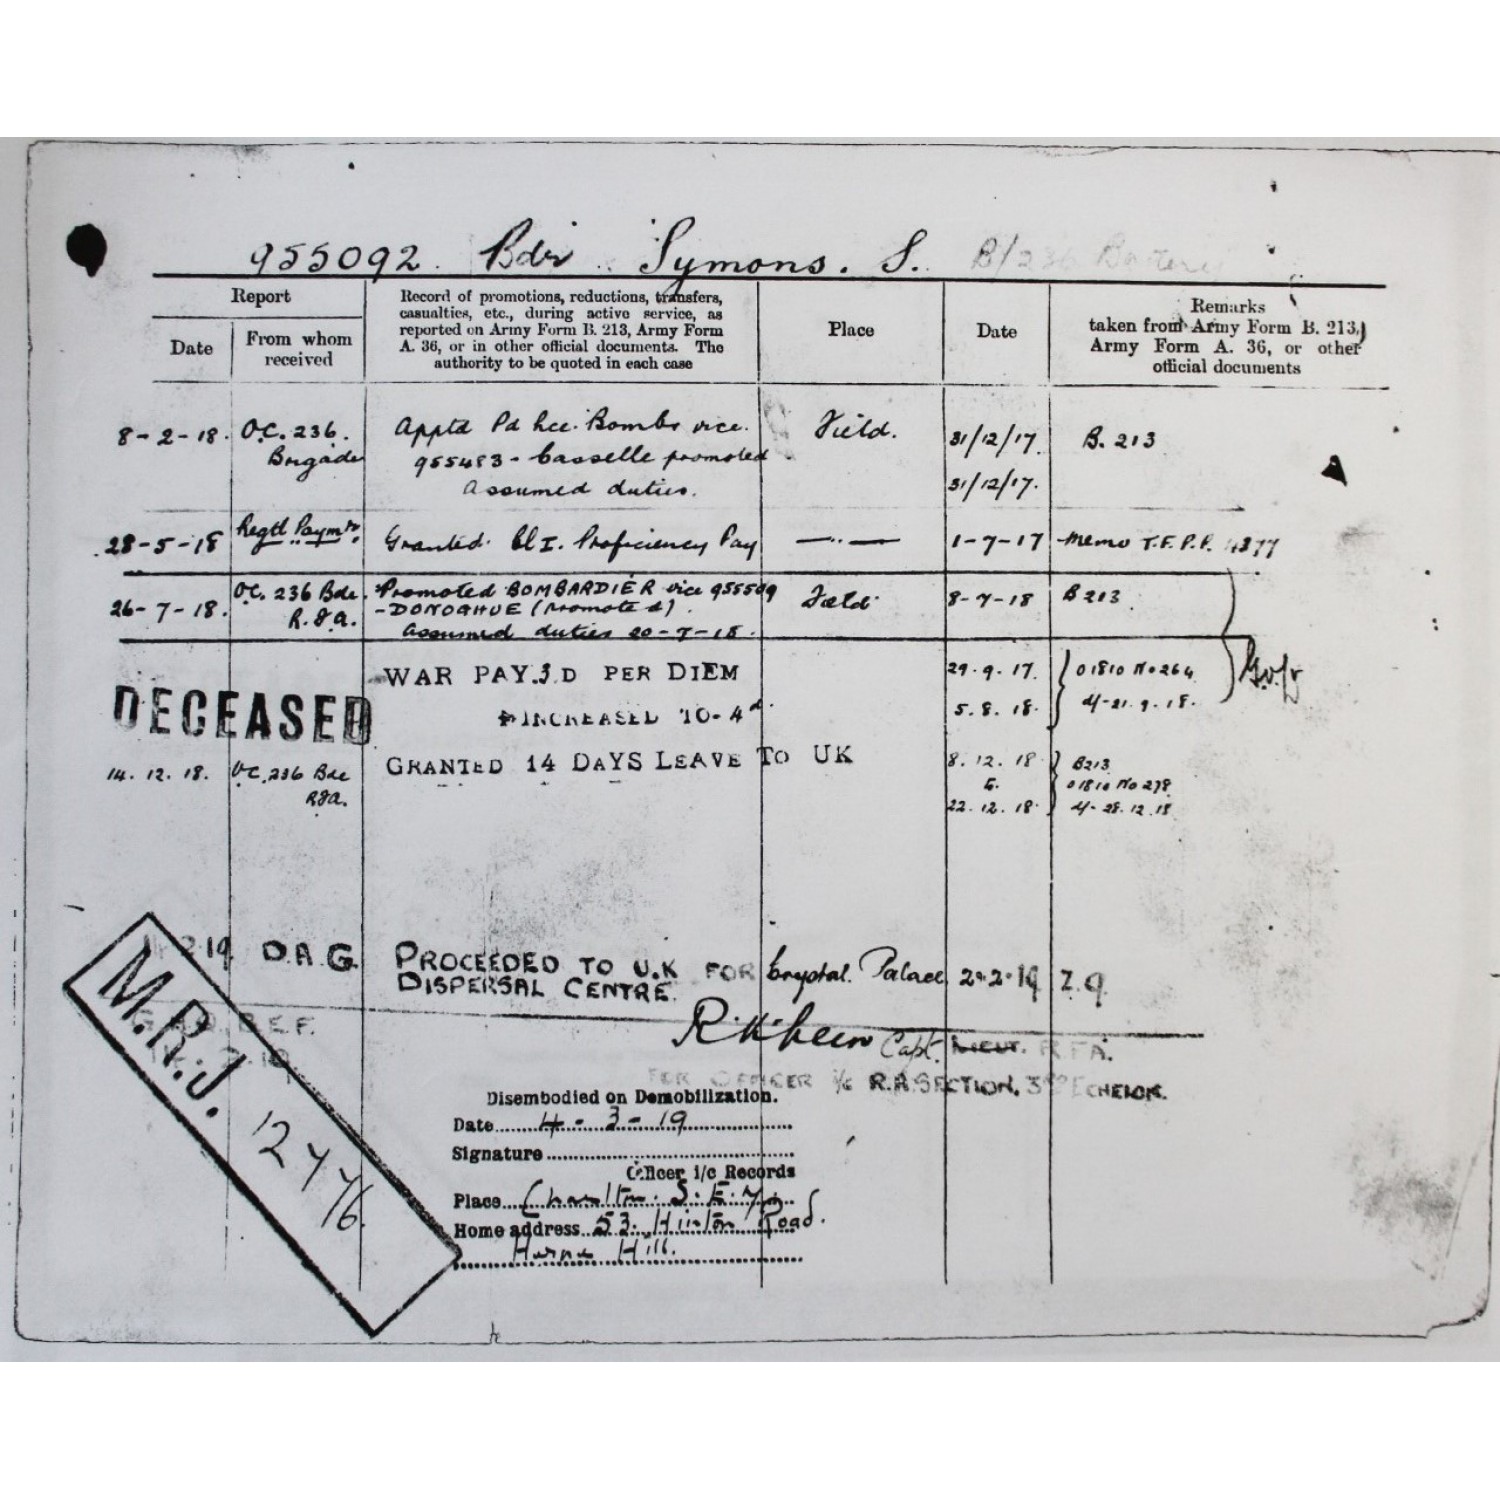 955092. Bdr Symons. S. B/236 Battery
Report
Date
From whom
received
Record of promotions, reductions, transfers,
casualties, etc., during active service, as
reported on Army Form B. 213, Army Form
A. 36, or in other official documents. The
authority to be quoted in each case
Place
Date
Remarks
taken from Army Form B. 213,
Army Form A. 36, or other
official documents
8-2-18. O.C. 236. Apptd Pd Bombr vice. Field. 31/12/17. B. 213
Brigade 955483 - Casselle promoted
Assumed duties. 31/12/17.
28-5-18 Regtl Paymr. Granted Cl I. Proficiency Pay — " — 1-7-17 Memo T.F.P.P.
26-7-18. O.C. 236 Bde. Promoted BOMBARDIER vice 955509 Field 8-7-18 B213
R.F.A. -DONOGHUE (promoted)
Assumed duties 20-7-18.
WAR PAY.3D PER DIEM 29.9.17. 01810 No 264
INCREASED TO- 4d. 5.8.18. 4-21.9.18.
DECEASED
14.12.18. O.C. 236 Bde GRANTED 14 DAYS LEAVE TO UK 8.12.18 B213
RFA. 01810 No 278
22.12.18 4-28.12.18
2.19 D.A.G. PROCEEDED TO U.K FOR Crystal Palace 2.2.19 Z.9
DISPERSAL CENTRE.
B.E.F.
Capt. LIEUT. R F A.
FOR OFFICER i/c R.A. SECTION, 3RD ECHELON.
M.R.J.
Disembodied on Demobilization.
Date 4-3-19
Signature
Officer i/c Records
Place Charlton. S.E.7.
Home address 53. Hinton Road.
Herne Hill.